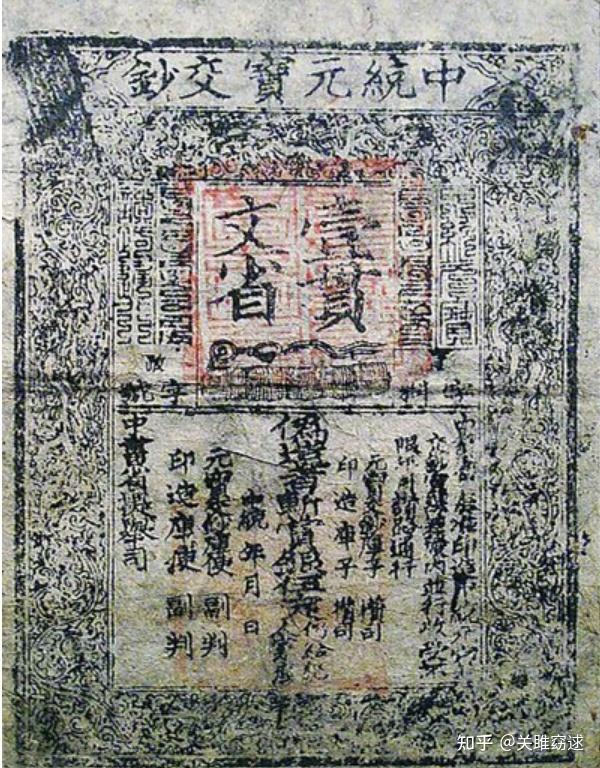 中統元寶交鈔
壹貫
文省
字料
字號
中書省奏准印造中統元寶
交鈔宣課差役內並行收受不
限年月諸路通行
元寶交鈔庫子 攢司
印造庫子 攢司
偽造者斬賞銀伍定
仍給犯人家產
中統 年 月 日
元寶交鈔庫使 副判
印造庫使 副判
中書省提舉司
知乎 @关雎窈逑